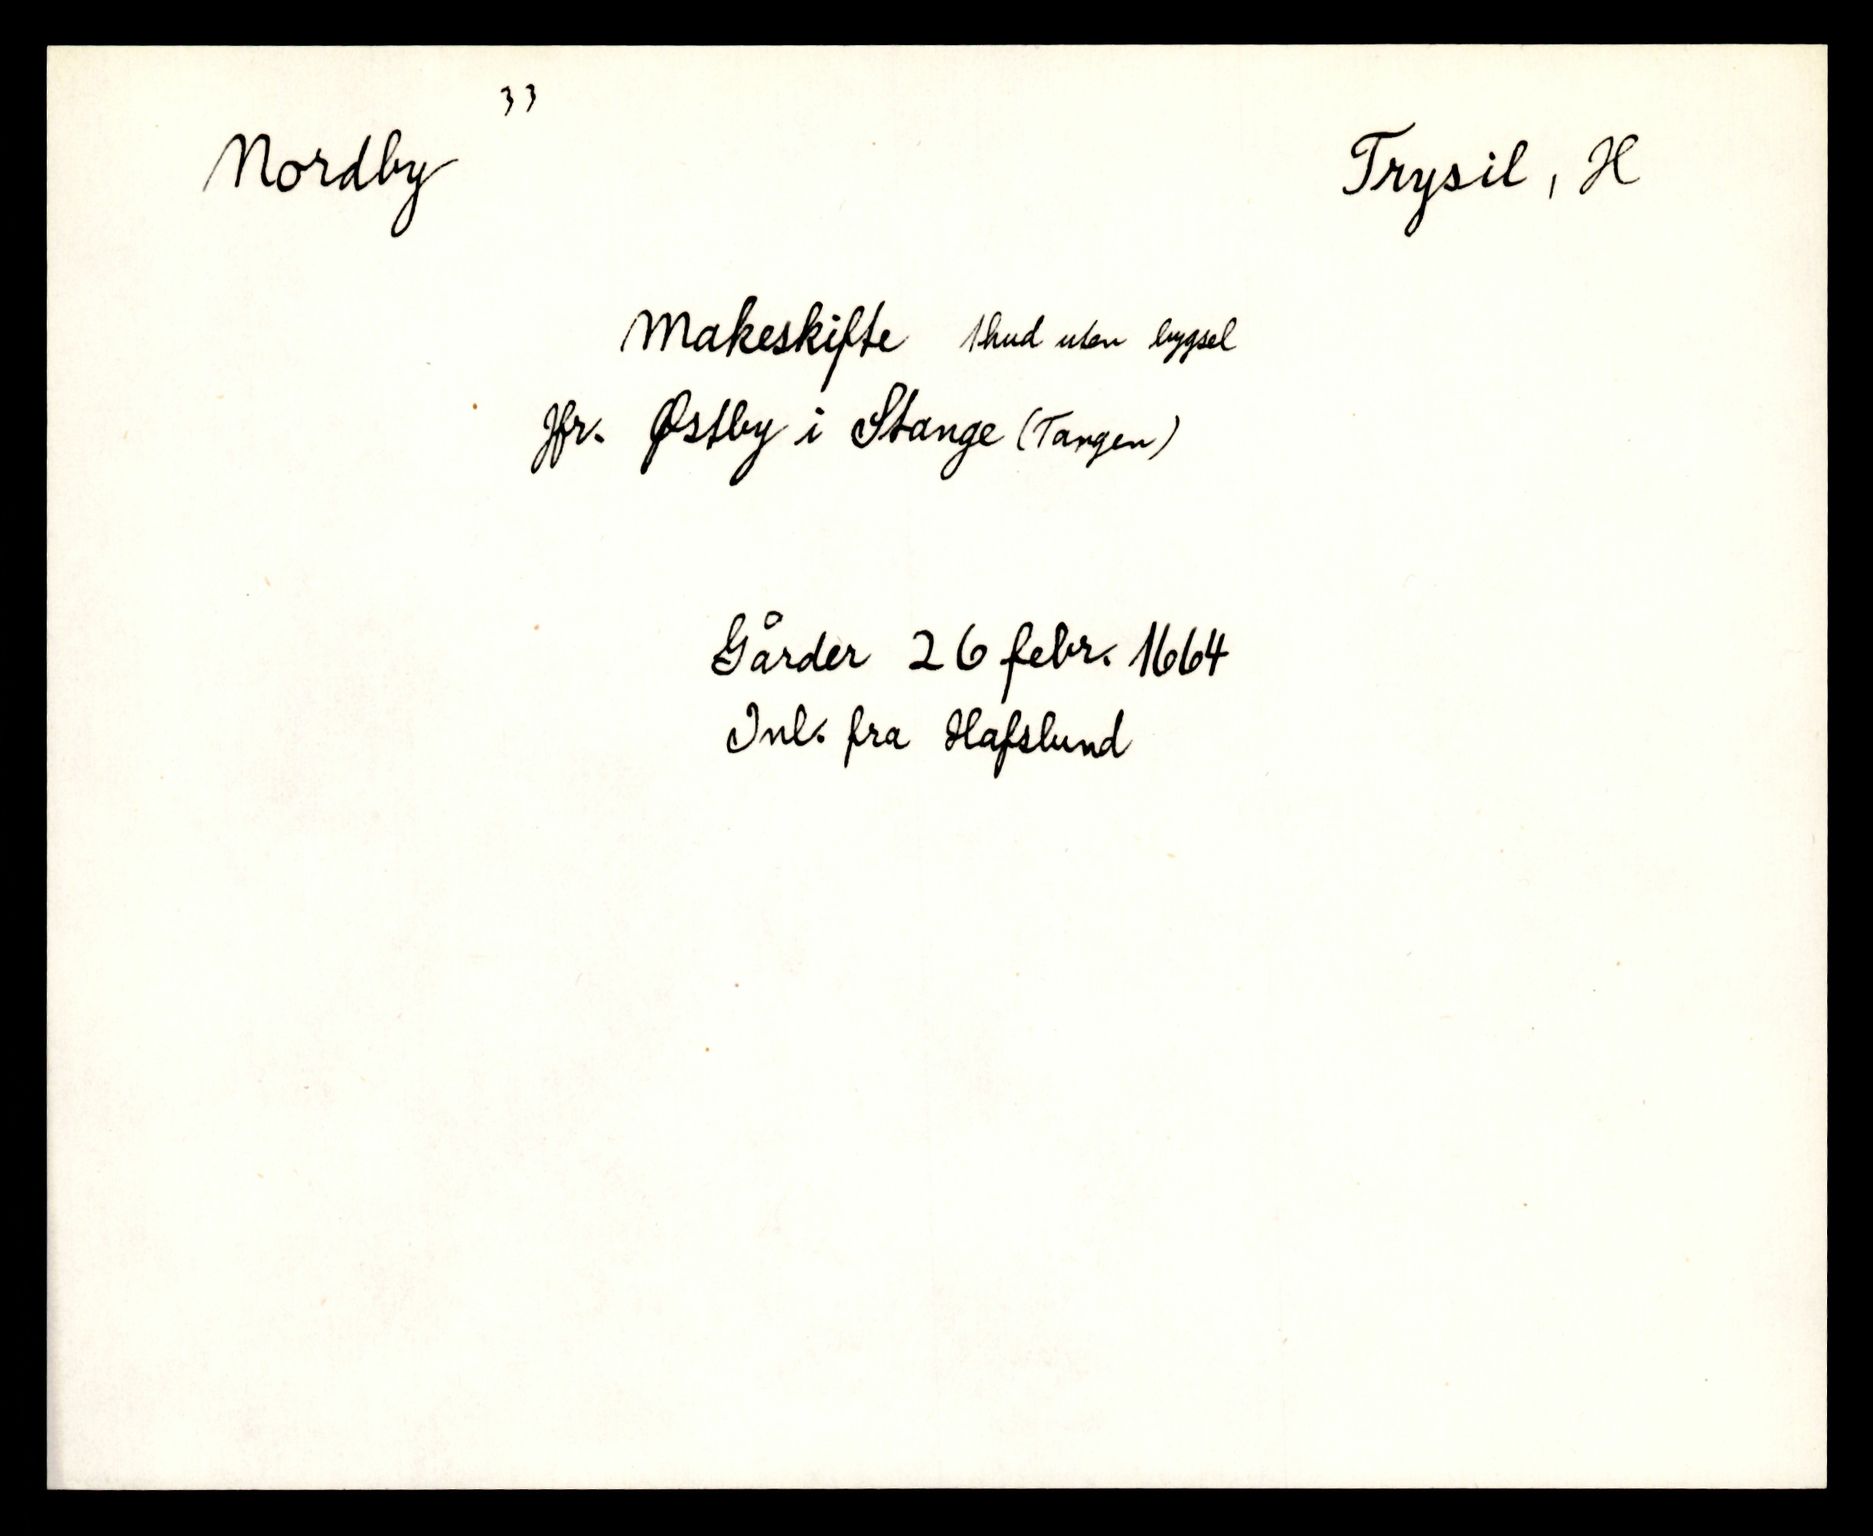 33
Nordby Trysil, H
Makeskifte 1 hud uten bygsel
Jfr. Østby i Stange (Tangen)
Gårder 26 febr. 1664
Inl. fra Hafslund